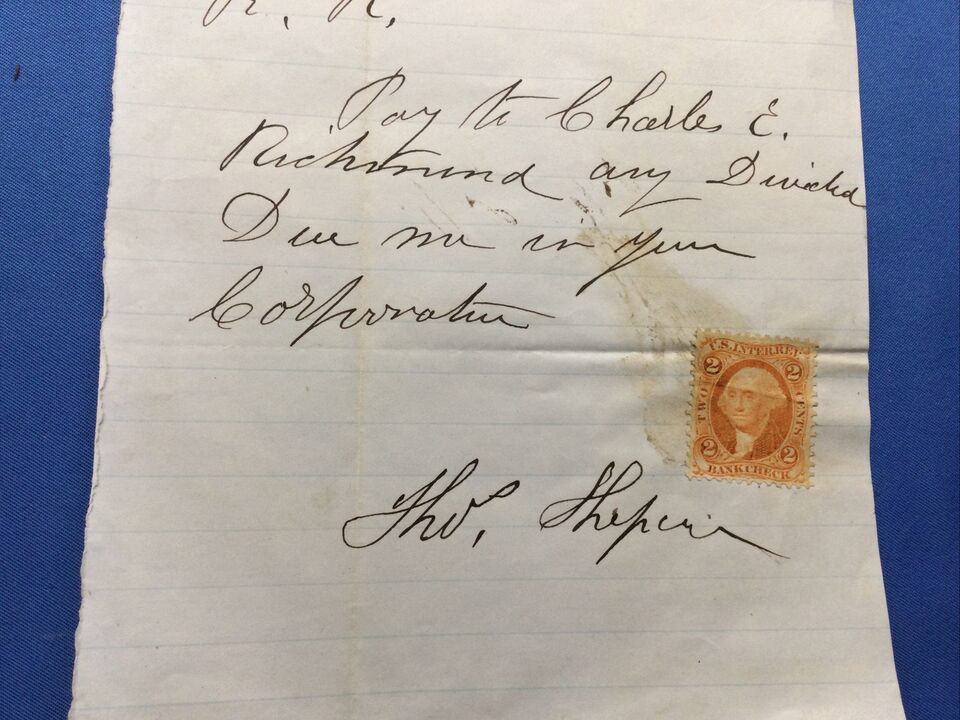 R. R.
Pay to Charles E.
Richmond any Divided
Due me in your
Corporation
U.S. INTER. REV.
2 2
TWO CENTS
2 2
BANK CHECK
Thos.